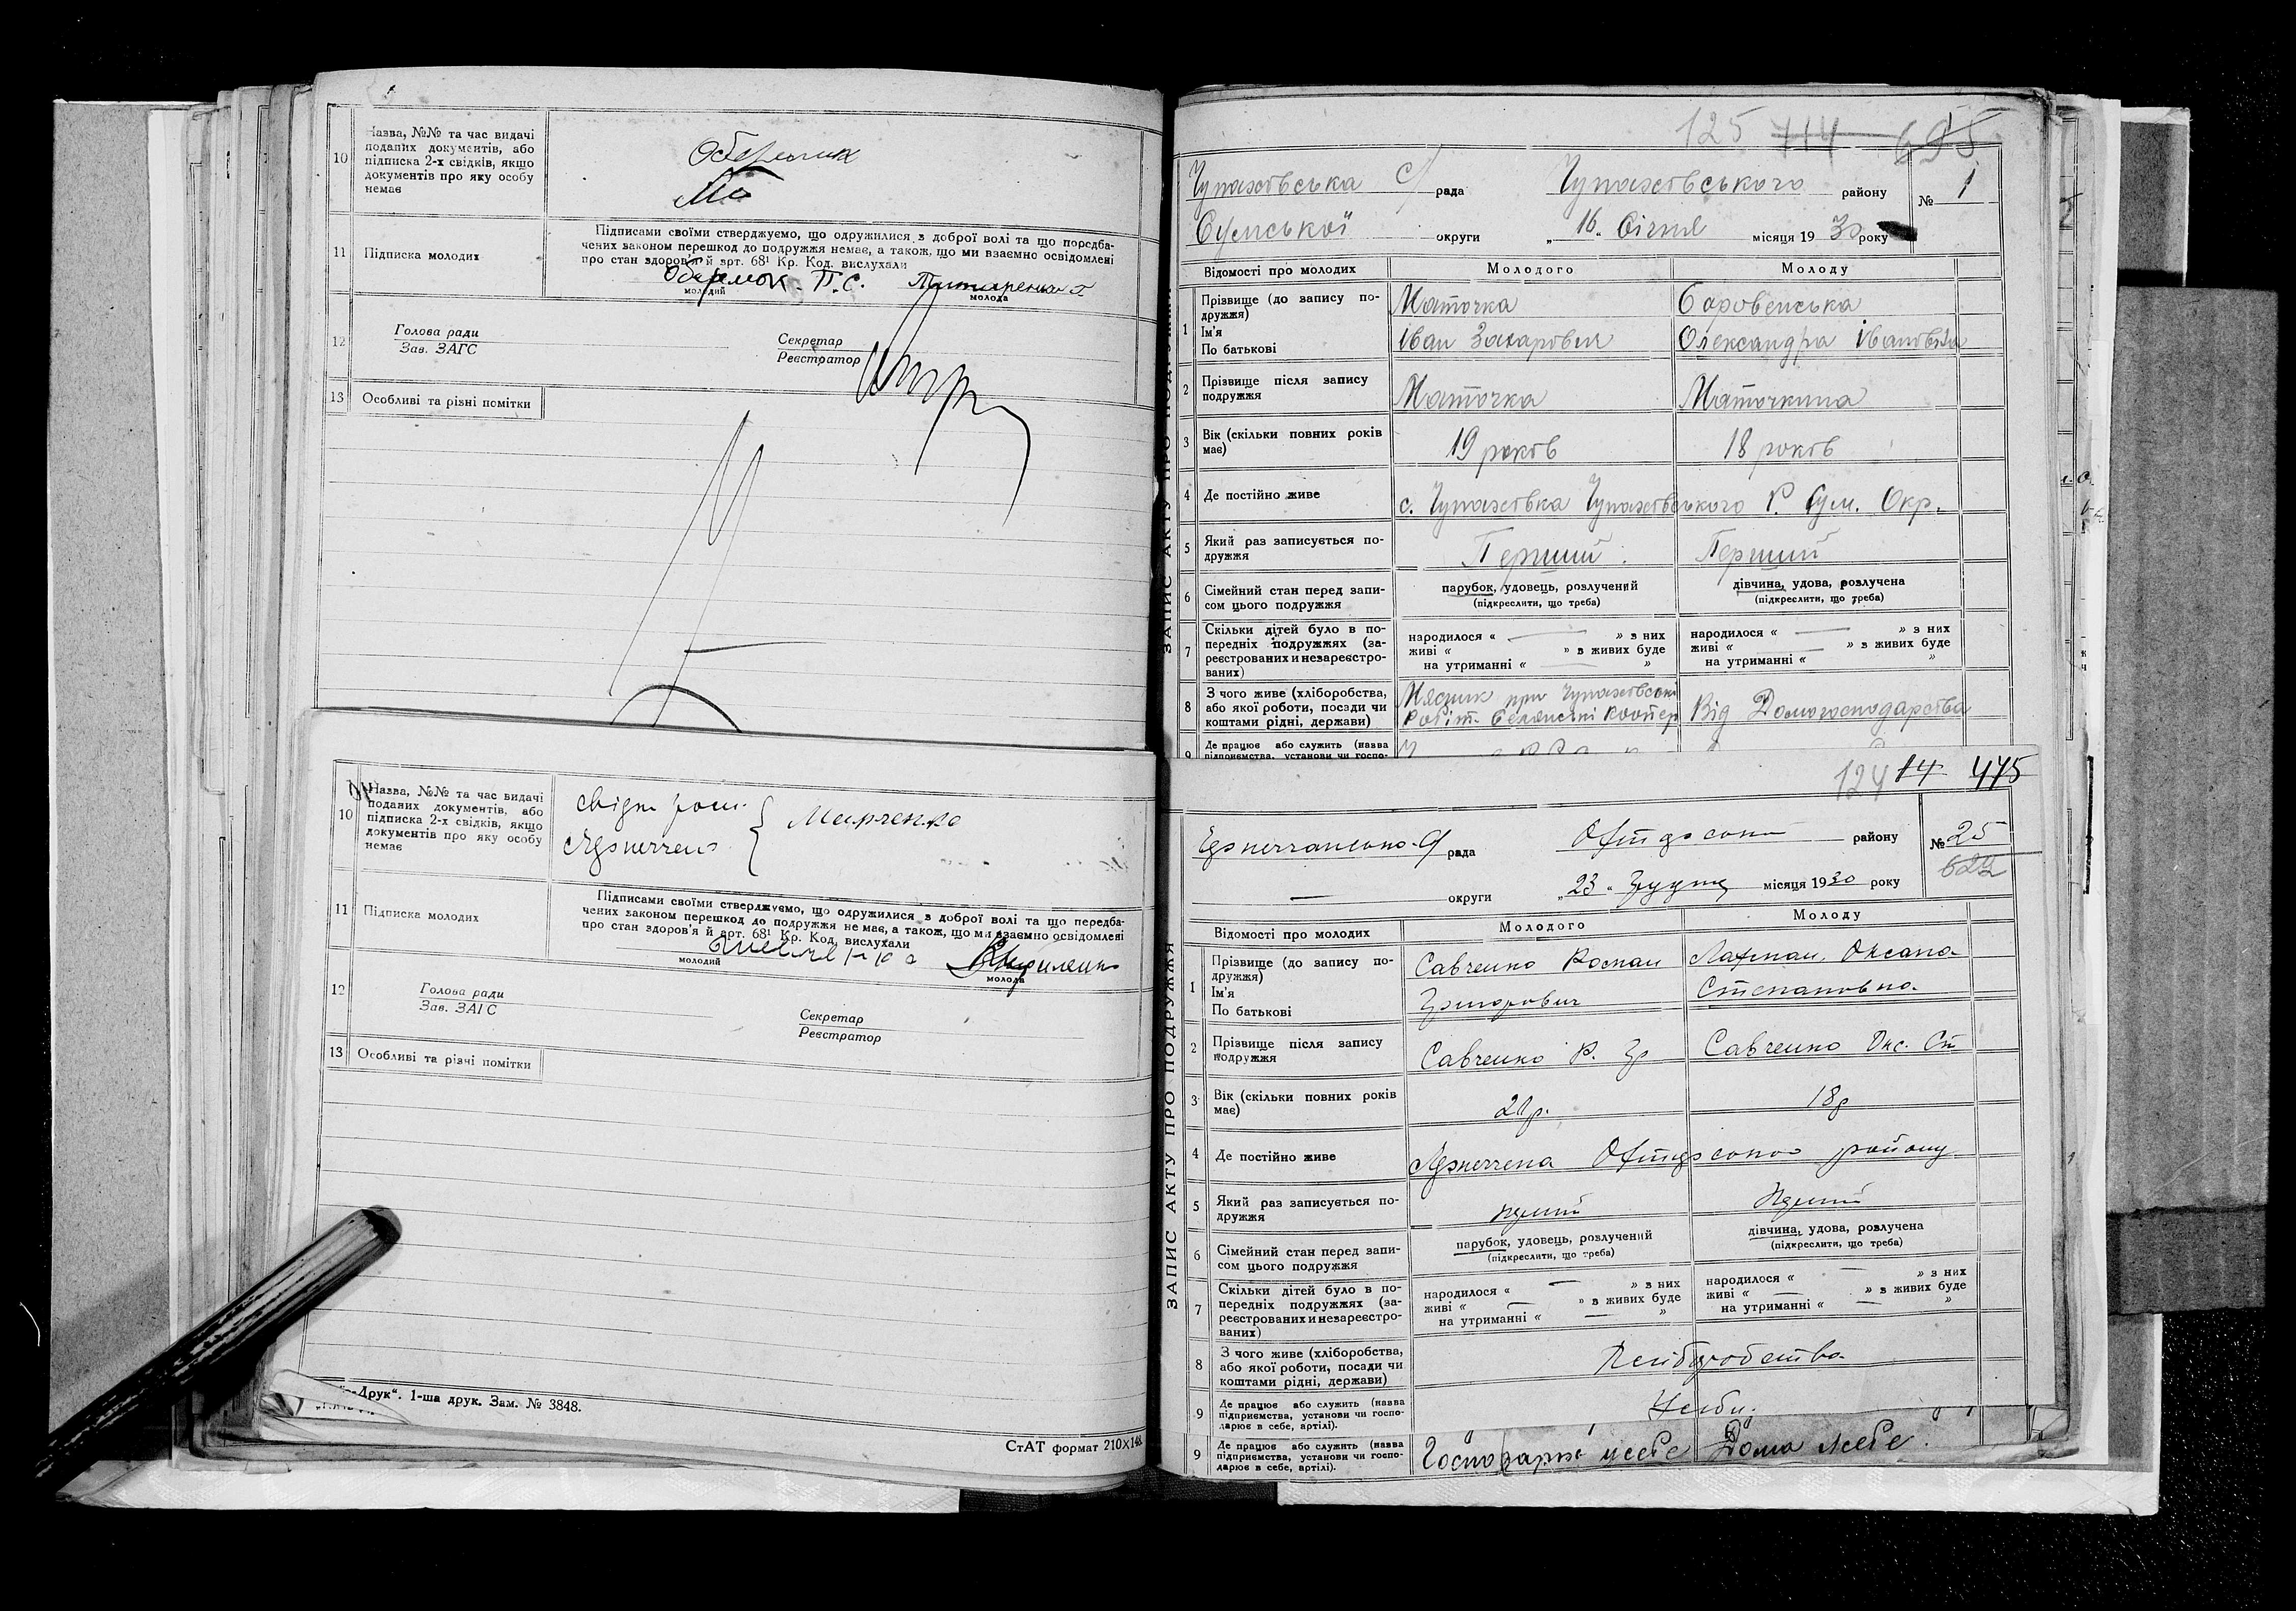 10
Назва, №№ та час видачі
поданих документів, або
підписка 2-х свідків, якщо
документів про яку особу
немає
11
Підписка молодих
Підписами своїми стверджуємо, що одружилися з доброї волі та що передба-
чених законом перешкод до подружжя немає, а також, що ми взаємно освідомлені
про стан здоров'я й арт. 68¹ Кр. Код. вислухали
Обармок П.С.
молодий
молода
12
Голова ради
Зав. ЗАГС
Секретар
Реєстратор
13
Особливі та різні помітки
10
Назва, №№ та час видачі
поданих документів, або
підписка 2-х свідків, якщо
документів про яку особу
немає
Марченко
11
Підписка молодих
Підписами своїми стверджуємо, що одружилися з доброї волі та що передба-
чених законом перешкод до подружжя немає, а також, що ми взаємно освідомлені
про стан здоров'я й арт. 68¹ Кр. Код. вислухали
молодий
молода
12
Голова ради
Зав. ЗАГС
Секретар
Реєстратор
13
Особливі та різні помітки
Друк“. 1-ша друк. Зам. № 3848.
СтАТ формат 210×148
125 714 695
Чупахівська с/рада Чупахівського району № 1
Сумської округи „16“ Січня місяця 1930 року
ЗАПИС АКТУ ПРО ПОДРУЖЖЯ
Відомості про молодих Молодого Молоду
1
Прізвище (до запису по-
дружжя)
Ім'я
По батькові
Маточка Боровенська
Іван Захарович Олександра Івановна
2
Прізвище після запису
подружжя
Маточка Маточкина
3
Вік (скільки повних років
має)
19 років 18 років
4
Де постійно живе
с. Чупахівка Чупахівського Р. Сум. Окр.
5
Який раз записується по-
дружжя
Перший Перший
6
Сімейний стан перед запи-
сом цього подружжя
парубок, удовець, розлучений
(підкреслити, що треба)
дівчина, удова, розлучена
(підкреслити, що треба)
7
Скільки дітей було в по-
передніх подружжях (за-
реєстрованих и незареєстро-
ваних)
народилося « — » з них
живі « — » в живих буде
на утриманні « — »
народилося « — » з них
живі « — » в живих буде
на утриманні « »
8
З чого живе (хліборобства,
або якої роботи, посади чи
коштами рідні, держави)
Мясник при Чупахівські
Робіт. Селянські коопер
Від Домогосподарства
9
Де працює або служить (назва
підприємства, установи чи госпо-
124 14 475
рада району № 25
622
— округи „23“ Грудня місяця 1930 року
ЗАПИС АКТУ ПРО ПОДРУЖЖЯ
Відомості про молодих Молодого Молоду
1
Прізвище (до запису по-
дружжя)
Ім'я
По батькові
Савченко Роман
Григорович
Лахман Оксана
Степановна
2
Прізвище після запису
подружжя
Савченко Р. Гр Савченко Окс. Ст
3
Вік (скільки повних років
має)
21р. 18р
4
Де постійно живе
району
5
Який раз записується по-
дружжя
перший перший
6
Сімейний стан перед запи-
сом цього подружжя
парубок, удовець, розлучений
(підкреслити, що треба)
дівчина, удова, розлучена
(підкреслити, що треба)
7
Скільки дітей було в по-
передніх подружжях (за-
реєстрованих и незареєстро-
ваних)
народилося « — » з них
живі « — » в живих буде
на утриманні « — »
народилося « — » з них
живі « — » в живих буде
на утриманні « — »
8
З чого живе (хліборобства,
або якої роботи, посади чи
коштами рідні, держави)
Хліборобства
9
Де працює або служить (назва
підприємства, установи чи госпо-
дарює в себе, артілі).
9
Де працює або служить (назва
підприємства, установи чи госпо-
дарює в себе, артілі).
Господарює усебе Дома усебе